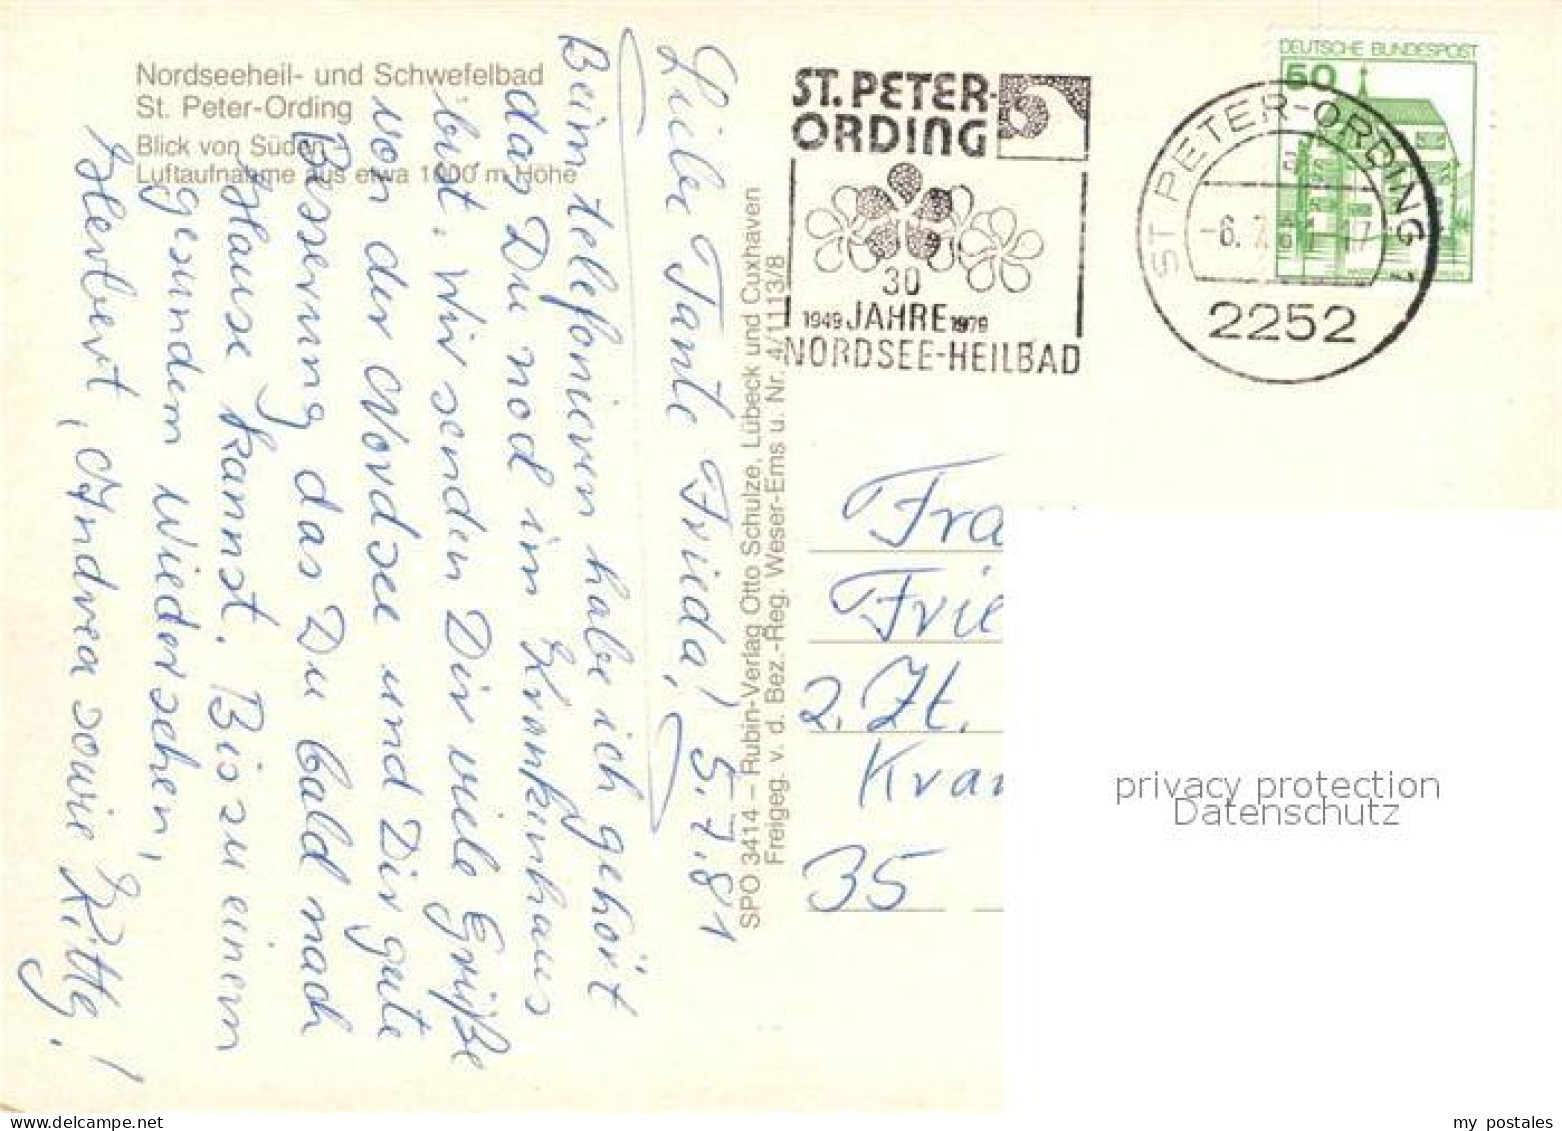 Nordseeheil- und Schwefelbad
St. Peter-Ording
Blick von Süden
Luftaufnahme aus etwa 1000 m Höhe
Liebe Tante Frieda! 5.7.81
Beim telefonieren habe ich gehört
das Du noch im Krankenhaus
bist. Wir senden Dir viele Grüße
von der Nordsee und Dir gute
Besserung das Du bald nach
Hause kannst. Bis zu einem
gesundem Wiedersehen,
Herbert, Andrea sowie Kitty!
SPO 3414 – Rubin-Verlag Otto Schulze, Lübeck und Cuxhaven
Freigeg. v. d. Bez.-Reg. Weser-Ems u. Nr. 4/1113/8
ST. PETER-
ORDING
30
1949 JAHRE 1979
NORDSEE-HEILBAD
DEUTSCHE BUNDESPOST
50
ST PETER-ORDING 1
-6. 7. 81 - 17
2252
Fra
Frie
z. Zt.
Kran
35
privacy protection
Datenschutz
my postales